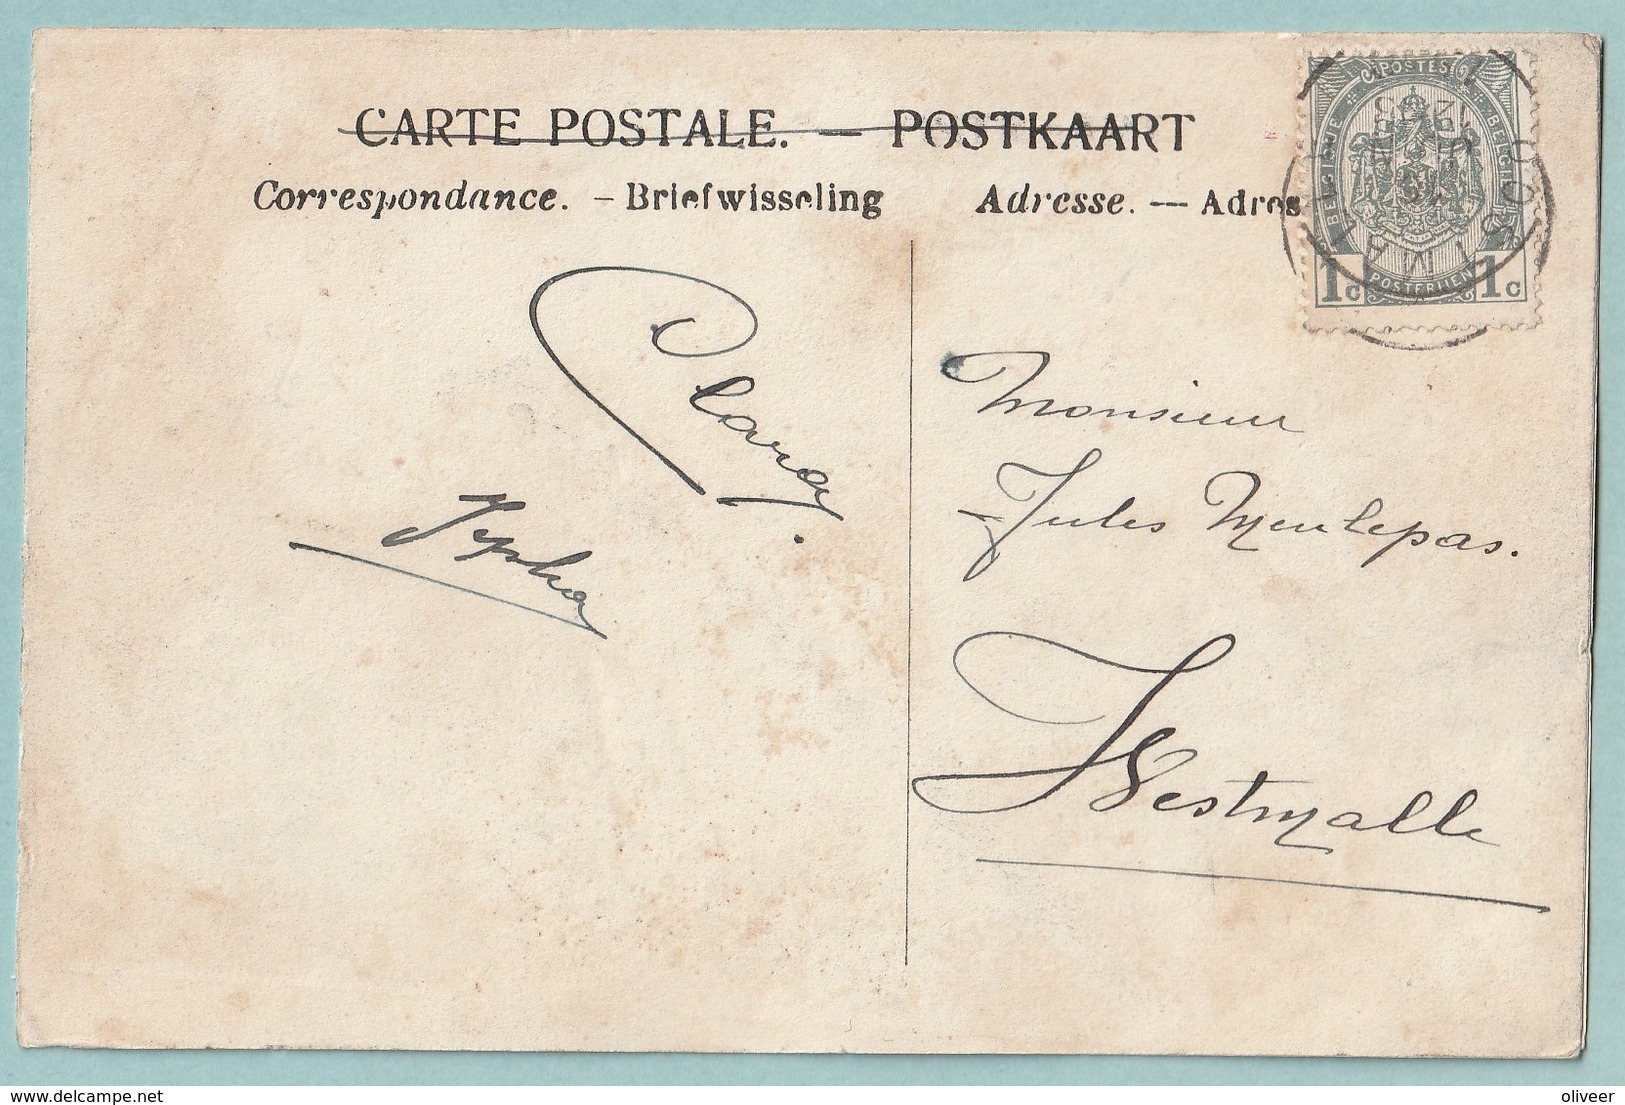 CARTE POSTALE. — POSTKAART
Correspondance. – Briefwisseling
Adresse. — Adres
POSTES
BELGIQUE
BELGIE
POSTERIJEN
1c 1c
OOSTMALLE
Clara.
Monsieur
Jules Meulepas.
Westmalle
delcampe.net
oliveer